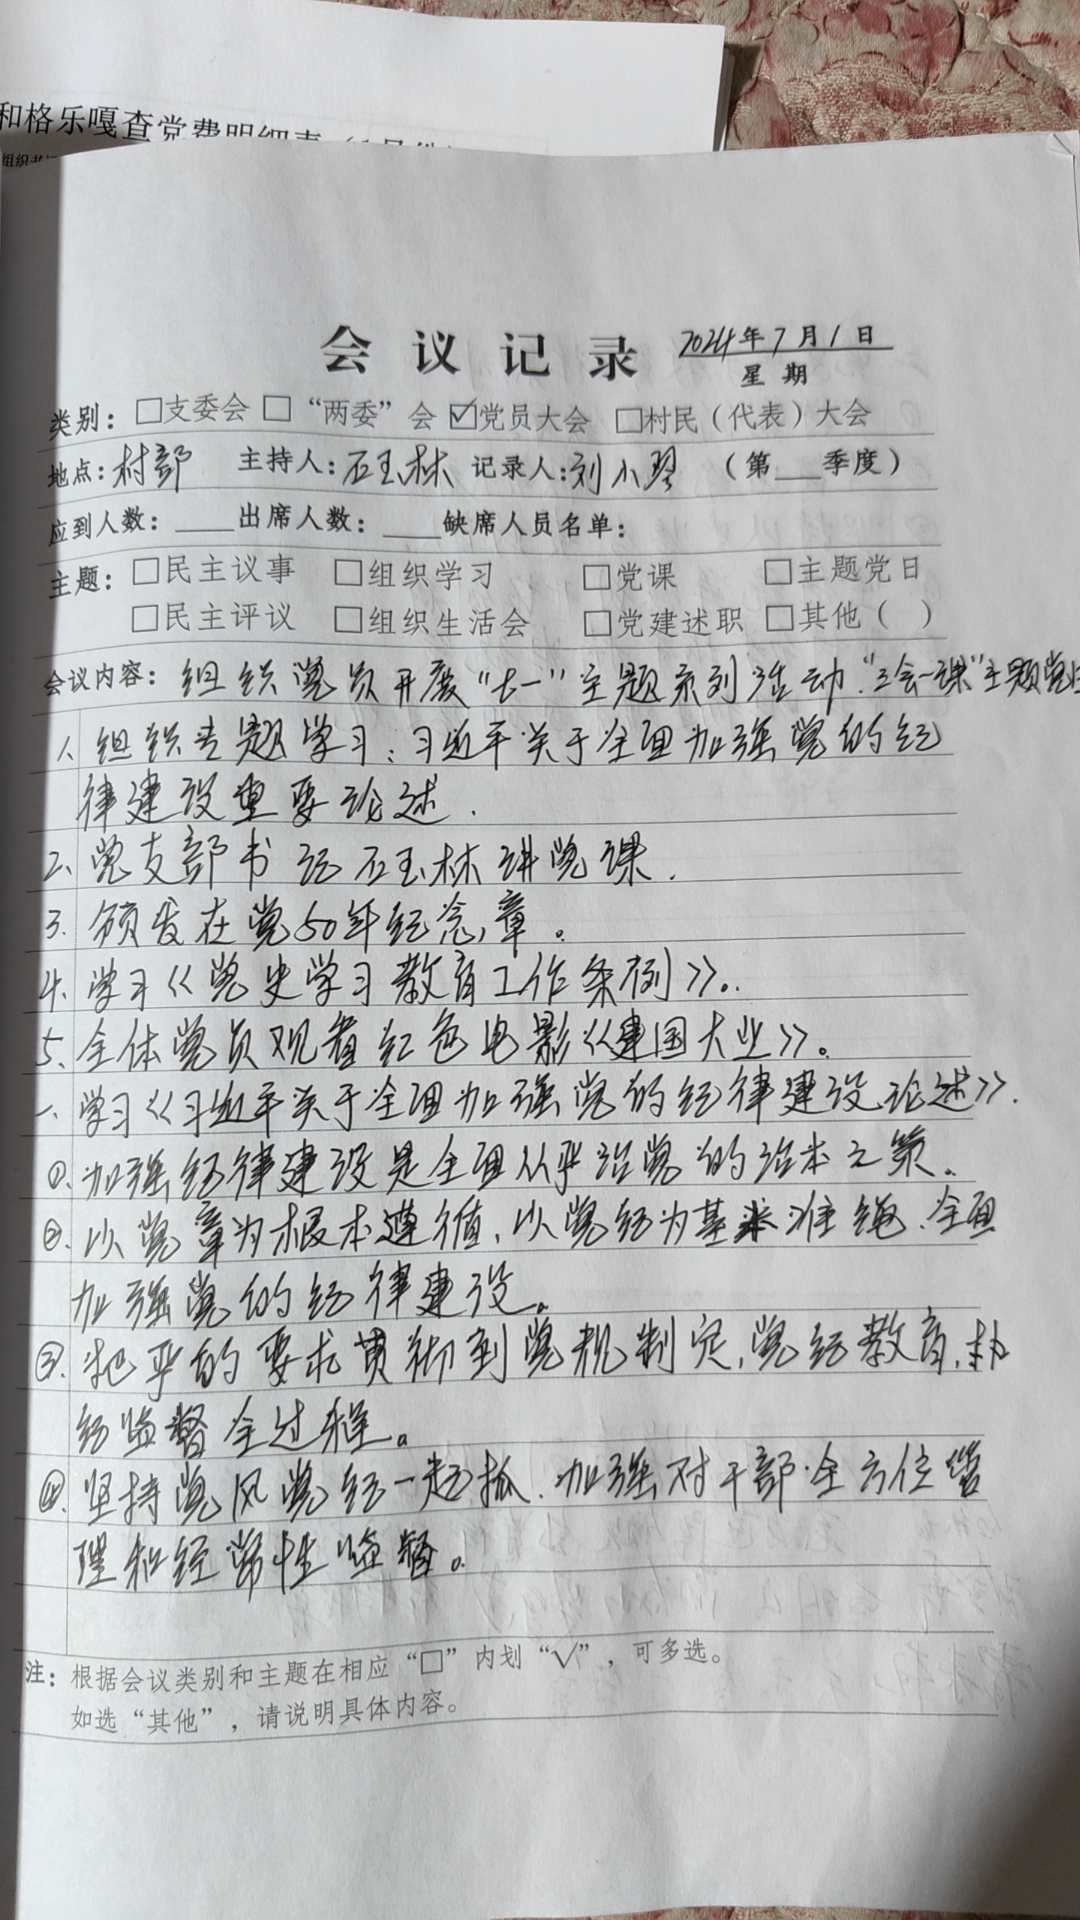 和格乐嘎查党费明细表
会议记录 2024年7月1日
星期
类别：□支委会 □“两委”会 ☑党员大会 □村民（代表）大会
地点：村部 主持人：石玉林 记录人：刘小琴 （第___季度）
应到人数：____出席人数：____缺席人员名单：
主题：□民主议事 □组织学习 □党课 □主题党日
□民主评议 □组织生活会 □党建述职 □其他（ ）
会议内容：组织党员开展“七一”主题系列活动.“三会一课”主题党日
1、组织专题学习：习近平关于全面加强党的纪
律建设重要论述.
2、党支部书记石玉林讲党课.
3.颁发在党50年纪念章。
4、学习《党史学习教育工作条例》。
5、全体党员观看红色电影《建国大业》。
一、学习《习近平关于全面加强党的纪律建设论述》.
①.加强纪律建设是全面从严治党的治本之策。
②.以党章为根本遵循、以党纪为基本准绳、全面
加强党的纪律建设。
③.把严的要求贯彻到党规制定,党纪教育,执
纪监督全过程。
④.坚持党风党纪一起抓.加强对干部全方位管
理和经常性监督。
注：根据会议类别和主题在相应“□”内划“√”，可多选。
如选“其他”，请说明具体内容。